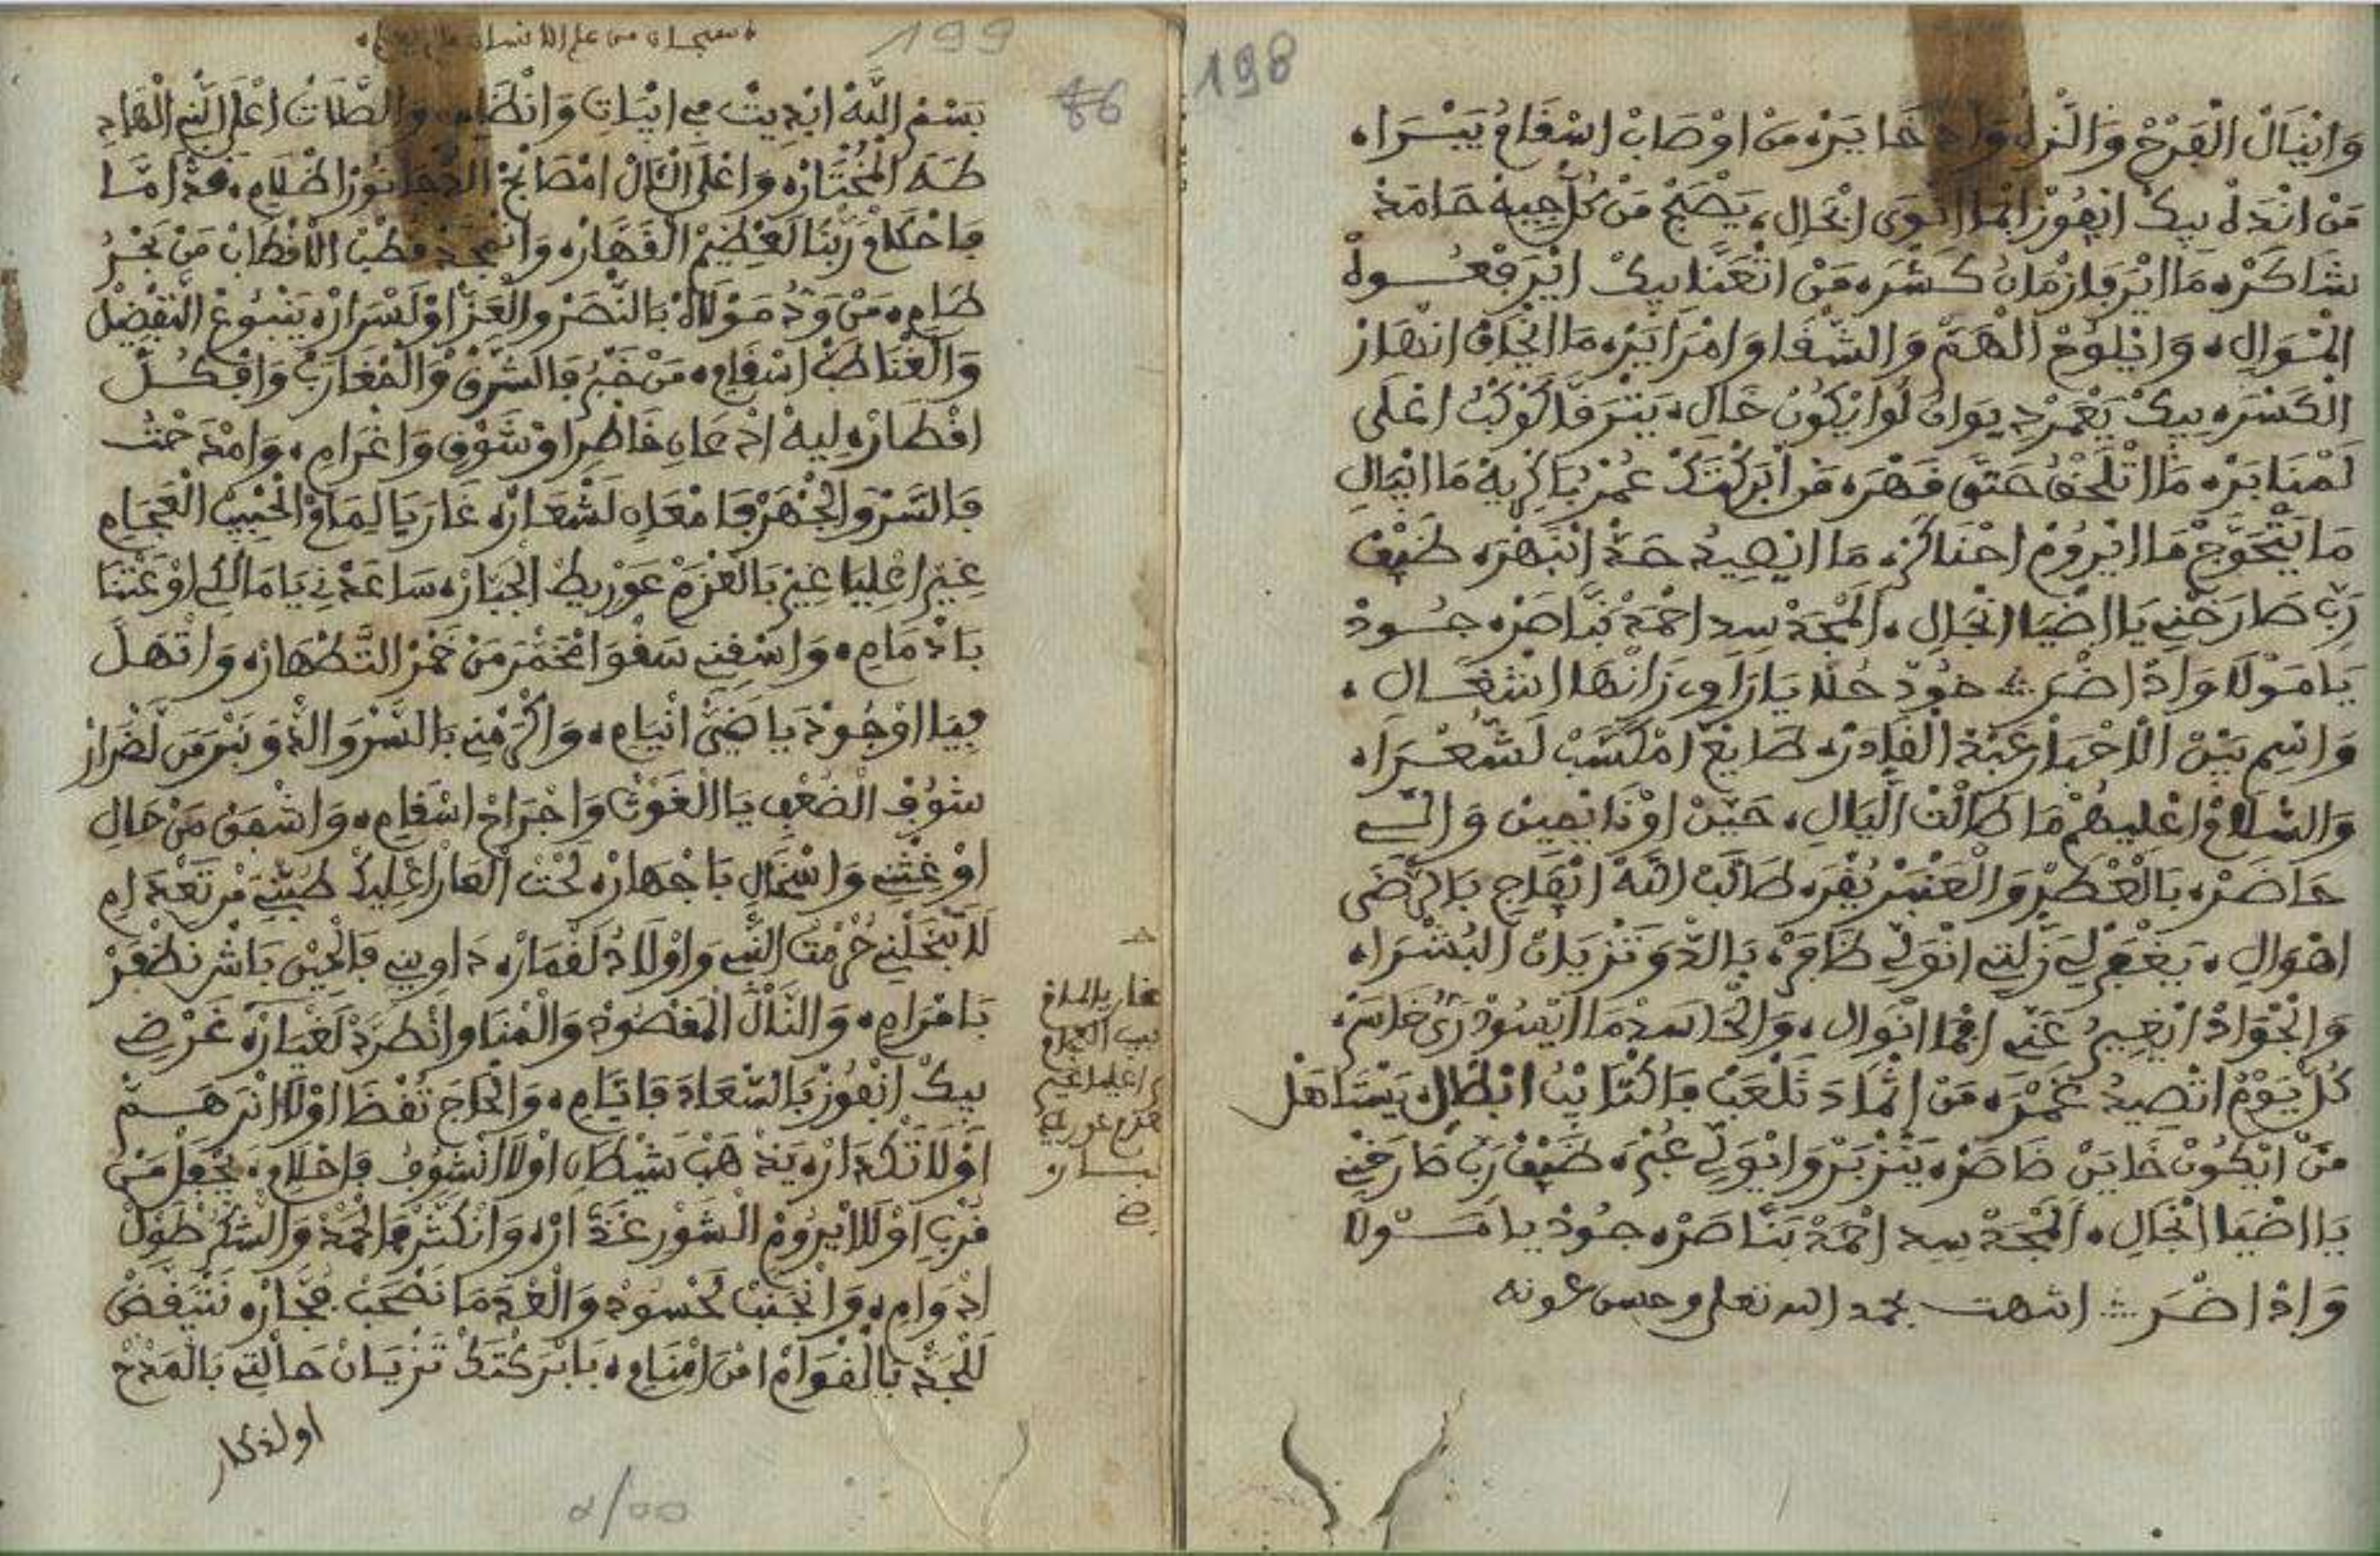 198
وَانْيَالْ الْفَرْحْ وَالنّزلُ وَاد خَايَرْه مَنْ اوْصَابْ اسْقَامْ يَبْرَاه
مَنْ انْدَهْ بِيكْ انِفُوزْ ابْمَا انْوَى ابْحَالِ، يَصْبَحْ مَنْ كُلْ جِيهَ حَامَدْ
شَاكَرْه مَا ايَرْ فَازْمَانُ كَسْرَه مَنْ اتْعَنَّا بِيكْ ايَرَفْعُوهْ
الْمْوَالِ، وَايْلُوحْ الْهَمْ وَالشْقَا وَامْرَايَرْه مَا ايْخَافْ انْهَارْ
الْكَسْرَه بِيكْ يَعْمَرْ دِيوَانُ لَوَايْكُونْ خَالِ، يَتْرَقَّا كُوكْبُ اعْلَى
لَمْنَابَرْه مَا اتْلَحْقُ حَتَّى قَهْرَه مَنْ ابَرَكْتَكْ عُمْرْ بَاكْرِيهْ مَا ايْمَالِ
مَا يَتْحَوَّجْ مَا ايْرُومْ احْنَاكَرْه مَا ايْصِيدُ حَدْ ابْنَهْرَه ضَيْفْ
رَبِّ طَارَحْنِي يَا اضْيَا انْجَالِ، الْمْجَدْ سِيدِ احْمَدْ بَنَّاصَرْه جُودْ
يَا مَوْلَا وَادْ اضْرَى جُودْ حُلَّا يَا رَاوِي زَانْهَا اشْغَالِ،
وَاسْمِ بَيْنْ الَاحْبَارْ عَبْدْ الْقَادَرْ طَايَعْ امْكَسَّبْ لَشْعْرَاه
وَالسْلَامْ اعْلِيهُمْ مَا طَالْتْ اللْيَالِ، حَيْنْ اوْنَايْمِينْ وَالِي
حَاضَرْه بَالْعْطَرْ وَالْعَنْبَرْ يُقْرَه طَالَبْ اللَّهْ انْفَاجِي بَالرّْضَى
اهْوَالِ، يَغْفَرْ لِي زَلْتِي انْوَلِّي ظَافَرْه بَالدْوَ تَزْيَانْ الْبُشْرَاه
وَالْجْوَادْ انْغِيبُ عَنِّي اقْمَا انْوَالِ، وَالْحَاسَدْ مَا ايْسُودْ رَىُ خَاسَرْه
كُلْ يَوْمْ اتْصِيدُ غَمْرَه مَنْ اثْمَادَ تَلْعَبْ فَاكْتَايْبْ ابْطَالِ، يَسْتَاهَلْ
مَنْ ايْكُونْ خَايَنْ خَاصَرْه يَتْزبَرْ وَايْوَلِّي عُبْرَه ضَيْفْ رَبِّ طَارَحْنِي
يَا اضْيَا انْجَالِ، الْمْجَدْ سِيدِ احْمَدْ بَنَّاصَرْه جُودْ يَا مَوْلَا
وَادْ اضْرَى انتهت بحمد الله تعلى وحسن عونه
199
سبحان من علم الانسان
66
بَسْمْ اللَّهْ ابْدِيتْ فِي ابْيَاتِ وَانْظَامِ، وَالصْلَاتُ اعْلَى النّْبِي الْهَادِ
طَهَ الْمُخْتَارْه وَاعْلَى الْاَلْ امْصَابَحْ الدْجَا نُورْ اظْلَامِ، هَدْ امَّا
فَاحْكَامْ رَبْنَا لَعْظِيمْ الْقَهَّارْه وَانْمَجَّدْ قُطْبْ الَاقْطَابْ مَنْ بَحْرُ
طَامِ، مَنْ وَدُ مَوْلَاهْ بَالنْصَرْ وَالْعَزْ اوْلَسْرَارْه يَنْبُوعْ التَّفْضِيلْ
وَالْغْنَا طَبْ اسْقَامِ، مَنْ خَبْرُ فَالشْرْقْ وَالْمْغَارَبْ وَافْكُلْ
اقْطَارْه لِيهْ ادْعَانِ خَاطْرِ اوْ شَوْقِ وَاغْرَامِ، وَامْدَحْتُ
فَالسَرْ وَالْجْهَرْ فَامْعَانِ لَشْعَارْه غَارَ يَا لِمَامْ الْحْبِيبْ الْعْجَامِ
غِيرْ اعْلِيَا غِيرْ بَالْعْزَمْ عَوْرِيطْ الْجْبَارْه سَاعَدْنِي يَا مَالَكِي اوْعَتْنَا
بَادْمَامِ، وَاسْقِنِي سَقْوَا امْخَمَّرْ مَنْ خَمْرْ التَّطْهَارْه وَاتْهَلَّ
فِيَا اوْجُودَ يَا ضَيْ انْيَامِ، وَاكْرَمْنِي بَالسْرْ وَالدْوَ نَبْرَ مَنْ لَضْرَارْ
شُوفْ الْضُعْفِي يَا الْغَوْثْ وَاجْرَاحْ اسْقَامِ، وَاشْفَقْ مَنْ حَالِ
اوْ غِثْنِي وَاسْخَالِ بَاجْهَارْه تَحْتْ الْعَارْ اعْلِيكْ طُبْنِي مَنْ تَعْدَامِ
لَا تَبْخَلْنِي حُرْمْتْ النّْبِي وَاوْلَادُ لَقْمَارْه دَاوِينِي فَالْحِينْ بَاشْ نَظْفَرْ
بَامْرَامِ، وَانَّالْ الْمَقْصُودْ وَالْمْنَا وَانْطَرَدْ لَغْيَارْه غَرْضِي
بِيكْ انْفُوزْ بَالسْعَادَ فَايَّامِ، وَالْحَاجَ تُقْضَا اوْلَا انْرَ هَمْ
اوْلَا تَكْدَارْه يَذْهَبْ شَيْطَانِ اوْلَا انْشُوفُ فَاحْلَامِ، يَجْفَلْ مَنْ
قُرْبِ اوْلَا ايْرُومْ الشَوْرْ غَدَّارْه وَانْكَتَّرْ فَالْحْمَدْ وَالشْكَرْ طُولْ
ادْوَامِ، وَانْجَنَّبْ لَحْسُودْ وَالْعْدَ مَا نَصْحَبْ فُجَّارْه نَتْيَقَّضْ
لَلْجَدْ بَالْقْوَامْ امْنَ امْنَامِ، بَابْرَكْتَكْ تَزْيَانْ حَالْتِي بَالْمَدْحْ
اولذكار
غار يا لمام
بيب العجام
ر اعليا غير
عزم عوريط
جبـار